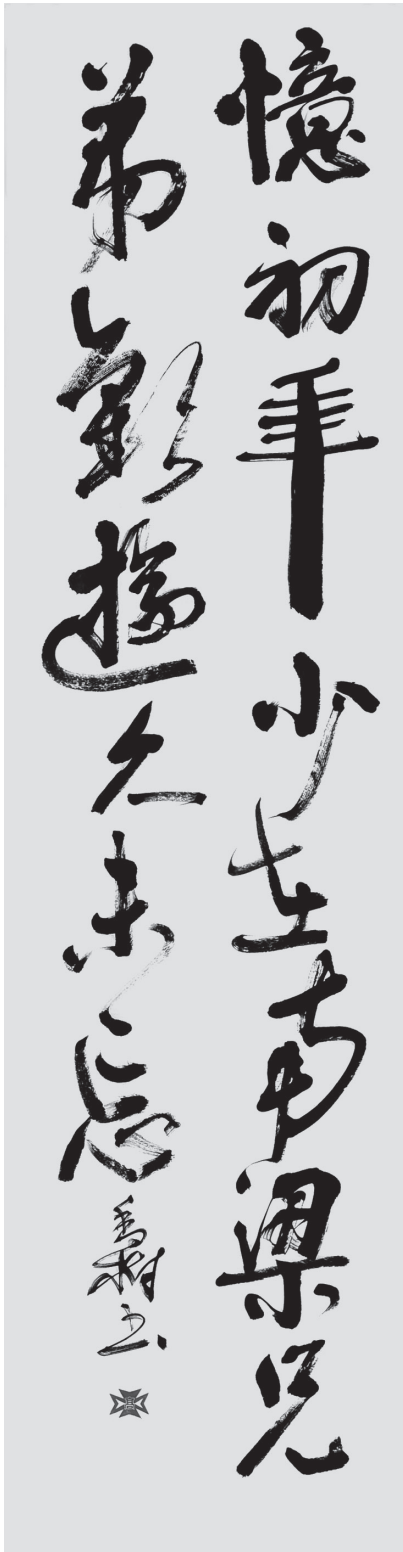 憶初年少在南梁兄
弟歡遊久未忘
樹书